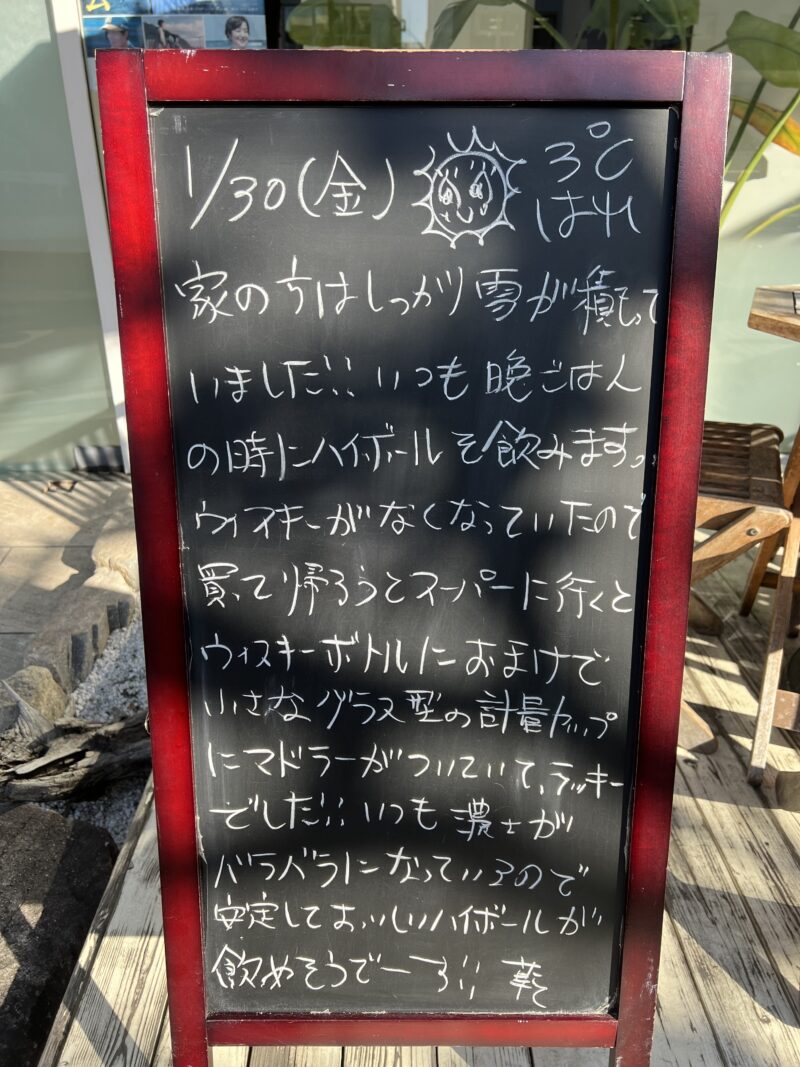 1/30(金) 3℃
はれ
家の方はしっかり雪が積もって
いました!! いつも晩ごはん
の時にハイボールを飲みます。
ウィスキーがなくなっていたので
買って帰ろうとスーパーに行くと
ウィスキーボトルにおまけで
小さなグラス型の計量カップ
にマドラーがついていて、ラッキー
でした!! いつも濃さが
バラバラになっているので
安定しておいしいハイボールが
飲めそうでーす!!